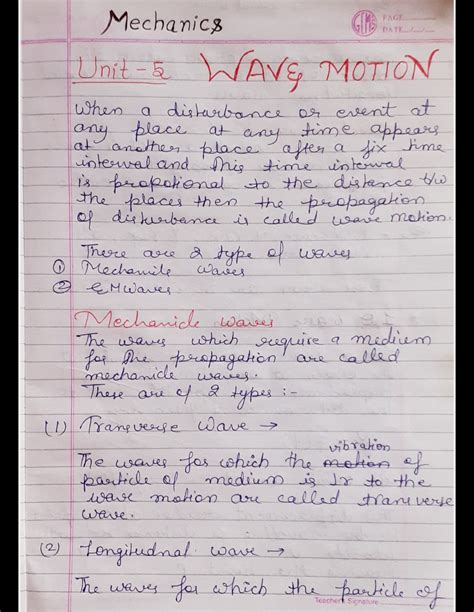 Mechanics
GIMG PAGE
DATE
Unit - 5 WAVE MOTION
When a disturbance or event at
any place at any time appears
at another place after a fix time
interval and this time interval
is propotional to the distance b/w
the places then the propagation
of disturbance is called wave motion.
There are 2 type of waves
① Mechanicle waves
② EMWaves
Mechanicle waves
The waves which require a medium
for the propagation are called
mechanicle waves.
These are of 2 types :-
(1) Transverse Wave →
vibration
The waves for which the motion of
particle of medium is ⊥r to the
wave motion are called transverse
wave.
(2) Longitudnal wave →
The waves for which the particle of
Teacher's Signature